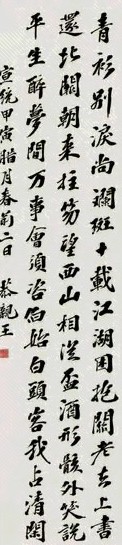 青衫別淚尚斕斑十載江湖困抱關老去上書
還北闕朝來拄笏望西山相從盃酒形骸外笑說
平生醉夢間萬事會須咨伯始白頭容我占清閑
宣統甲寅臘月春前二日 恭親王